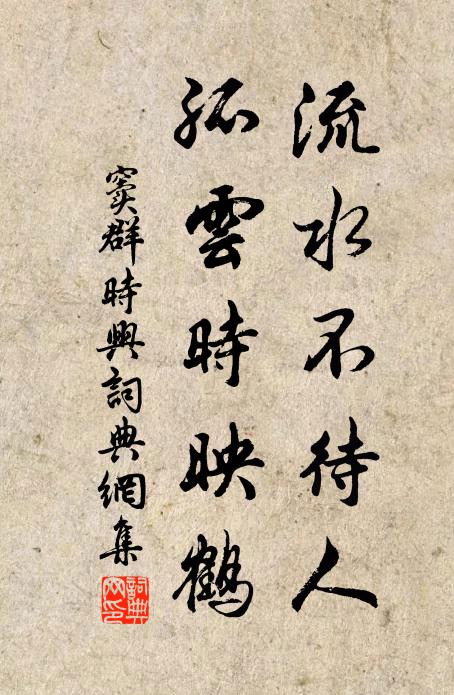 流水不待人
孤雲時映鶴
竇群時興詞典網集
詞典網印